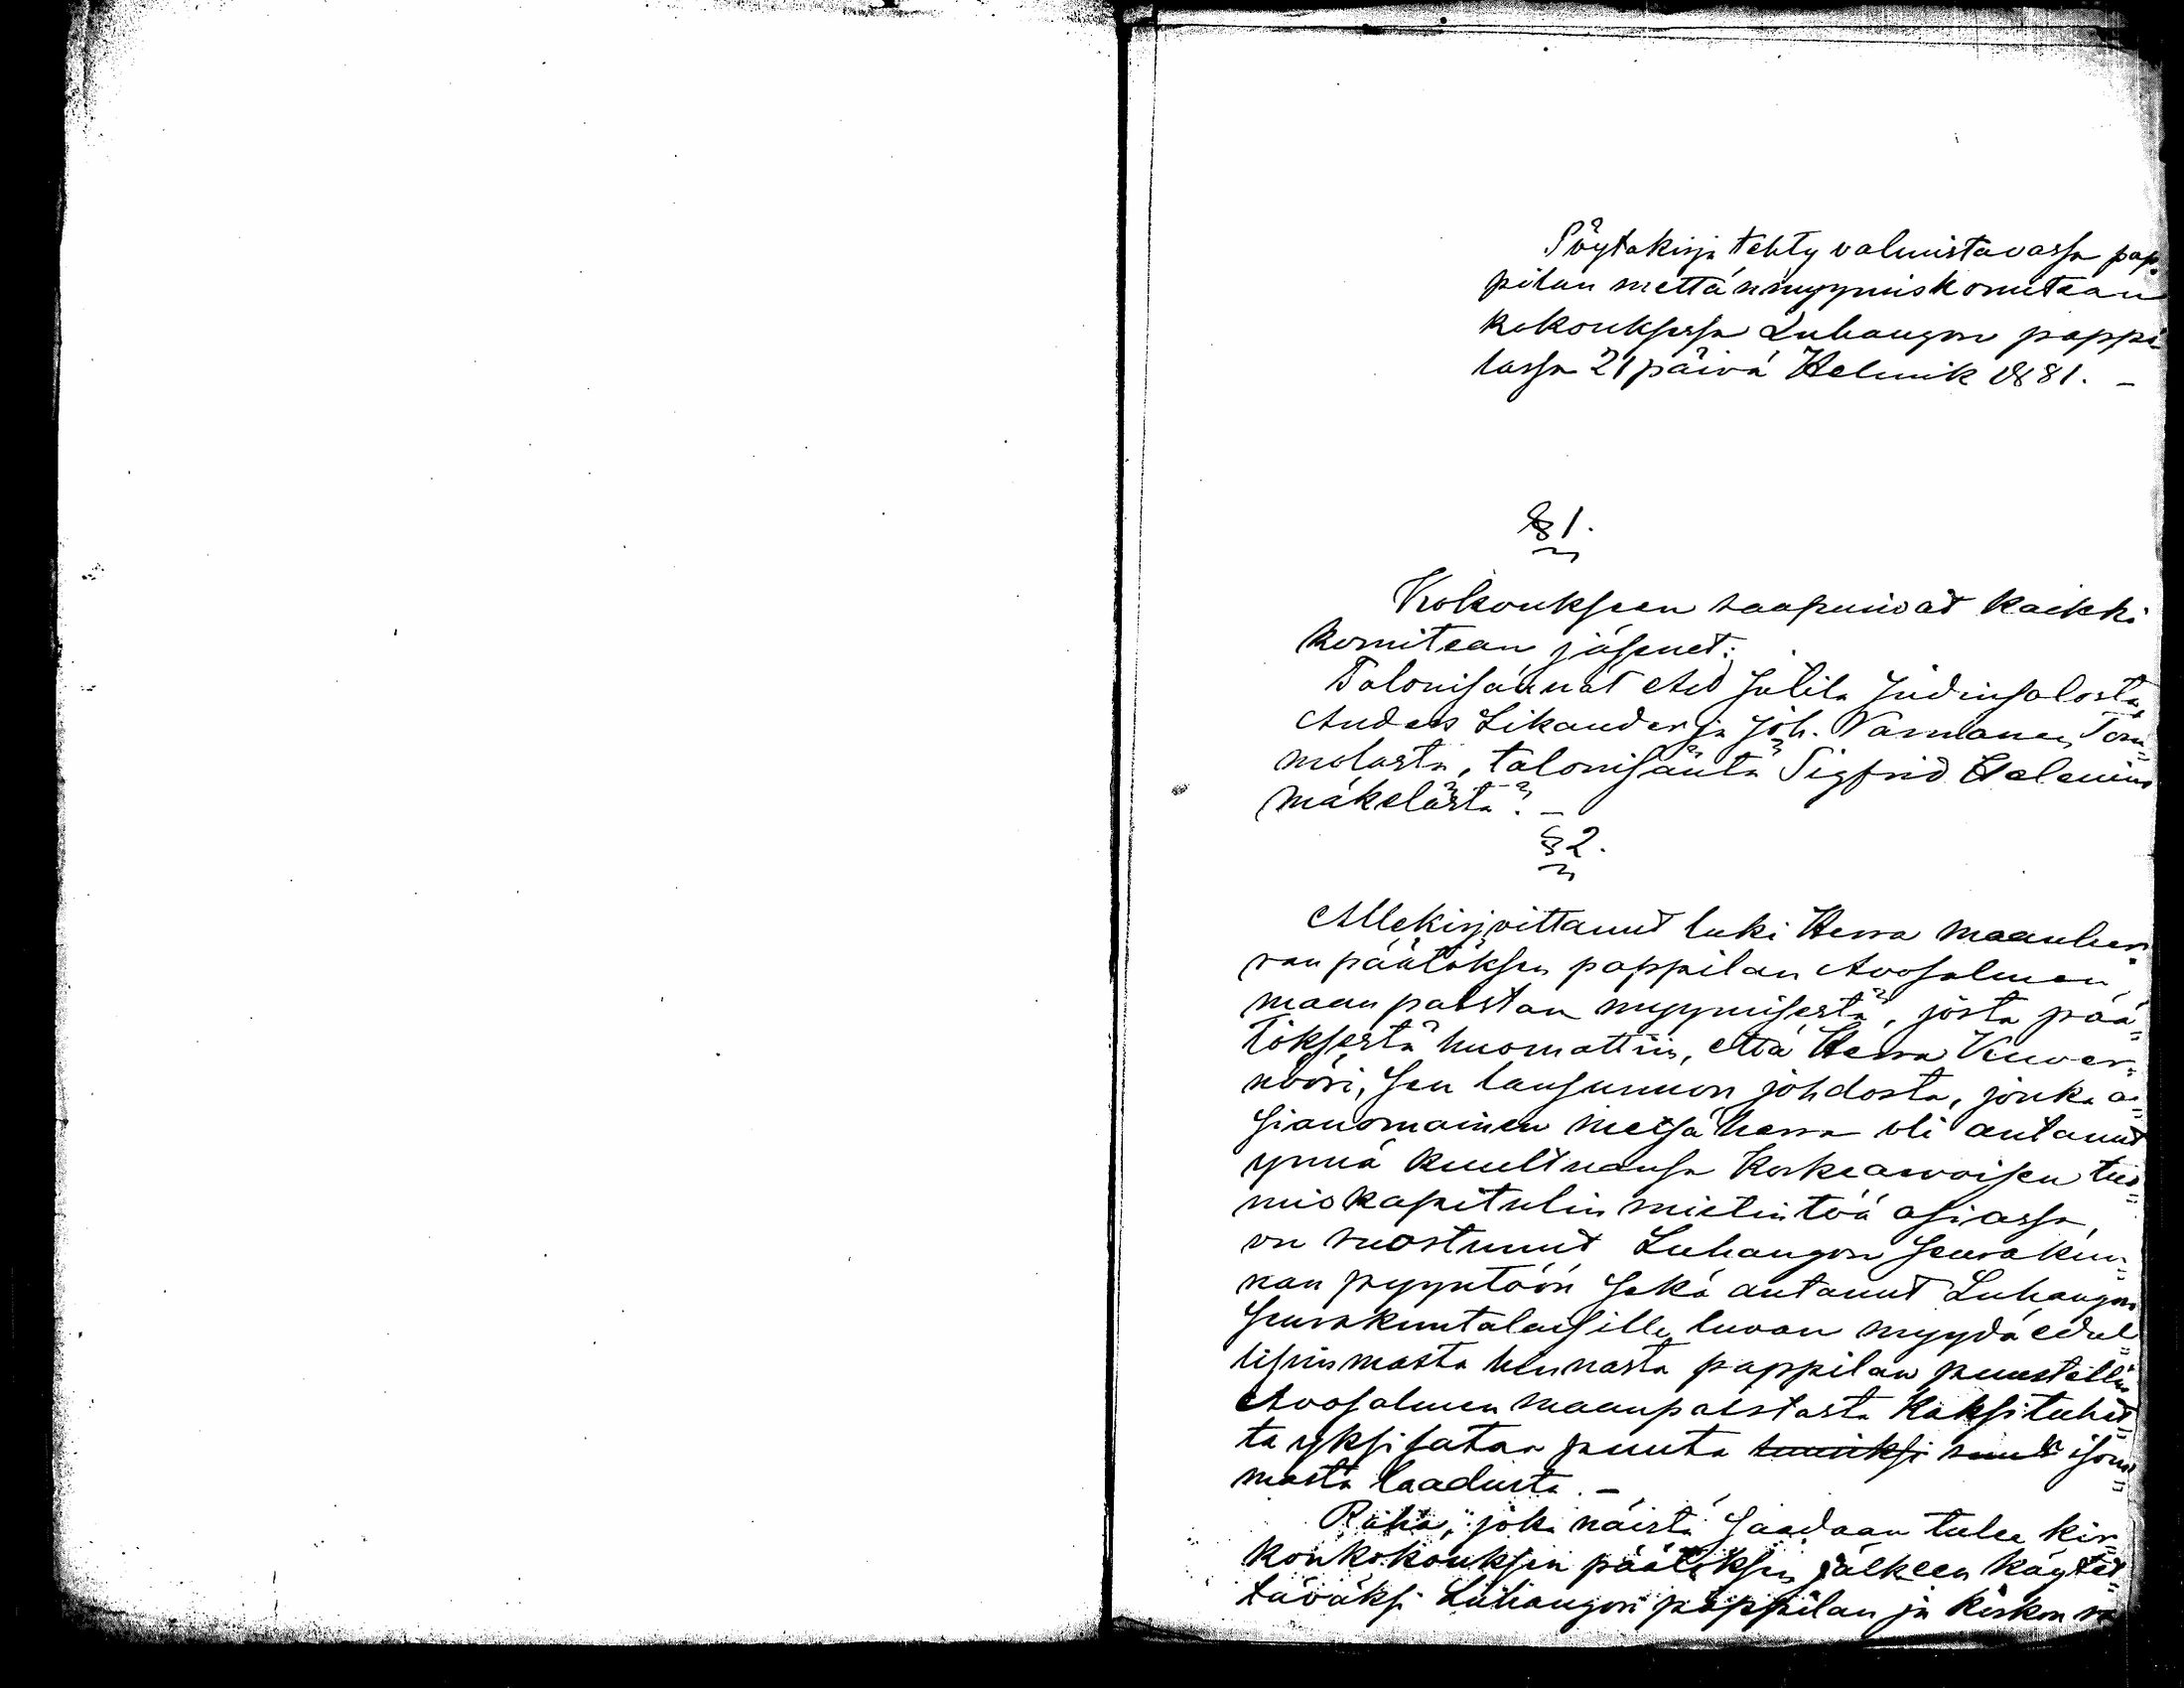 Pöytäkirja tehty valmistavassa pap-
pilan mettänmyymiskomitean
kokouksessa Luhangon pappi-
lassa 21 päivä Helmik 1881. -
§ 1.
Kokoukseen saapuivat kaikki
komitean jäsenet:
Talonisännät Ad Jutila Judinsalosta,
Anders Likander ja Joh. Varmanen Tom=
molasta, talonisäntä Sigfrid Helenius
mäkelästä. -
§ 2.
Allekirjoittanut luki Herra maanher-
ran päätöksen pappilan Avosalmen
maan palstan myymisestä, josta pää=
töksestä huomattiin, että Herra Kuver=
nööri, sen lausunnon johdosta, jonka a=
sianomainen metsäherra oli antanut
ynnä kuultuansa Korkeaarvoisen tuo=
miokapitulin mietintöä asiassa,
on suostunut Luhangon seurakun=
nan pyyntöön sekä antanut Luhangon
seurakuntalaisille luvan myydä edul=
lisimmasta hinnasta pappilan puustellin
Avosalmen maanpalstasta kaksituhat=
ta yksisataa puuta isom=
masta laadusta. -
Raha, joka näistä saadaan tulee kir=
konkokouksen päätöksen jälkeen käytet=
täväksi Luhangon pappilan ja kirkon